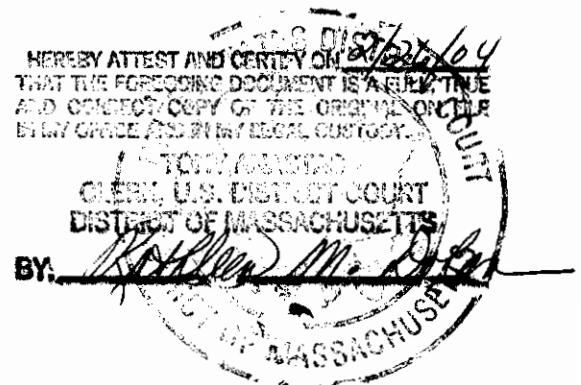 HEREBY ATTEST AND CERTIFY ON 2/26/04
THAT THE FOREGOING DOCUMENT IS A FULL, TRUE
AND CORRECT COPY OF THE ORIGINAL ON FILE
IN MY OFFICE AND IN MY LEGAL CUSTODY.
TONY ANASTAS
CLERK, U.S. DISTRICT COURT
DISTRICT OF MASSACHUSETTS
BY: Kathleen M. Dolan
COURT
OF MASSACHUSE